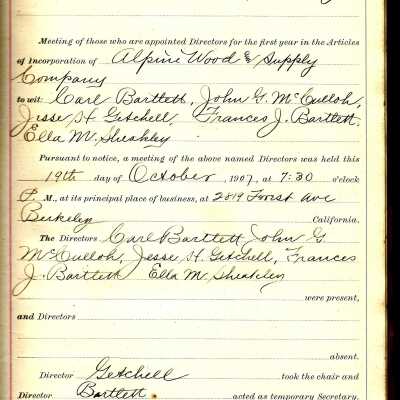 Meeting of those who are appointed Directors for the first year in the Articles
of Incorporation of Alpine Wood & Supply
Company
to wit: Carl Bartlett, John G. McCulloh,
Jesse H. Getchell, Frances J. Bartlett,
Ella M. Sheakley
Pursuant to notice, a meeting of the above named Directors was held this
19th day of October, 1907, at 7:30 o'clock
P. M., at its principal place of business, at 2019 Forest Ave
Berkeley California.
The Directors Carl Bartlett, John G.
McCulloh, Jesse H. Getchell, Frances
J. Bartlett Ella M. Sheakley
were present,
and Directors
absent.
Director Getchell took the chair and
Director Bartlett acted as temporary Secretary.